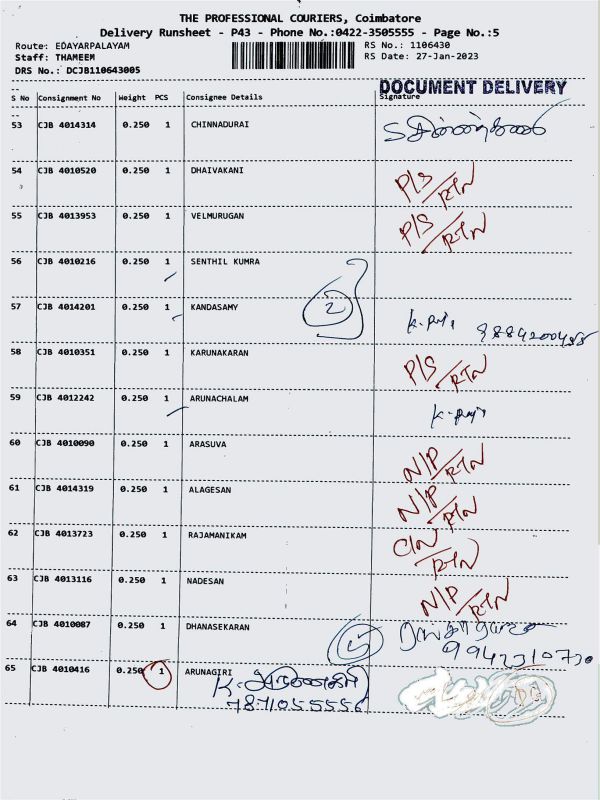 THE PROFESSIONAL COURIERS, Coimbatore
Delivery Runsheet - P43 - Phone No.:0422-3505555 - Page No.:5
Route: EDAYARPALAYAM RS No.: 1106430
Staff: THAMEEM RS Date: 27-Jan-2023
DRS No.: DCJB110643005
DOCUMENT DELIVERY
S No Consignment No Weight PCS Consignee Details Signature
53 CJB 4014314 0.250 1 CHINNADURAI
54 CJB 4010520 0.250 1 DHAIVAKANI P/S/RTN
55 CJB 4013953 0.250 1 VELMURUGAN P/S/RTN
56 CJB 4010216 0.250 1 SENTHIL KUMRA
2
57 CJB 4014201 0.250 1 KANDASAMY
58 CJB 4010351 0.250 1 KARUNAKARAN P/S/RTN
59 CJB 4012242 0.250 1 ARUNACHALAM
60 CJB 4010090 0.250 1 ARASUVA N/P/RTN
61 CJB 4014319 0.250 1 ALAGESAN N/P/RTN
62 CJB 4013723 0.250 1 RAJAMANIKAM C/N/RTN
63 CJB 4013116 0.250 1 NADESAN N/P/RTN
64 CJB 4010087 0.250 1 DHANASEKARAN
9942310730
65 CJB 4010416 0.250 1 ARUNAGIRI
7871055556